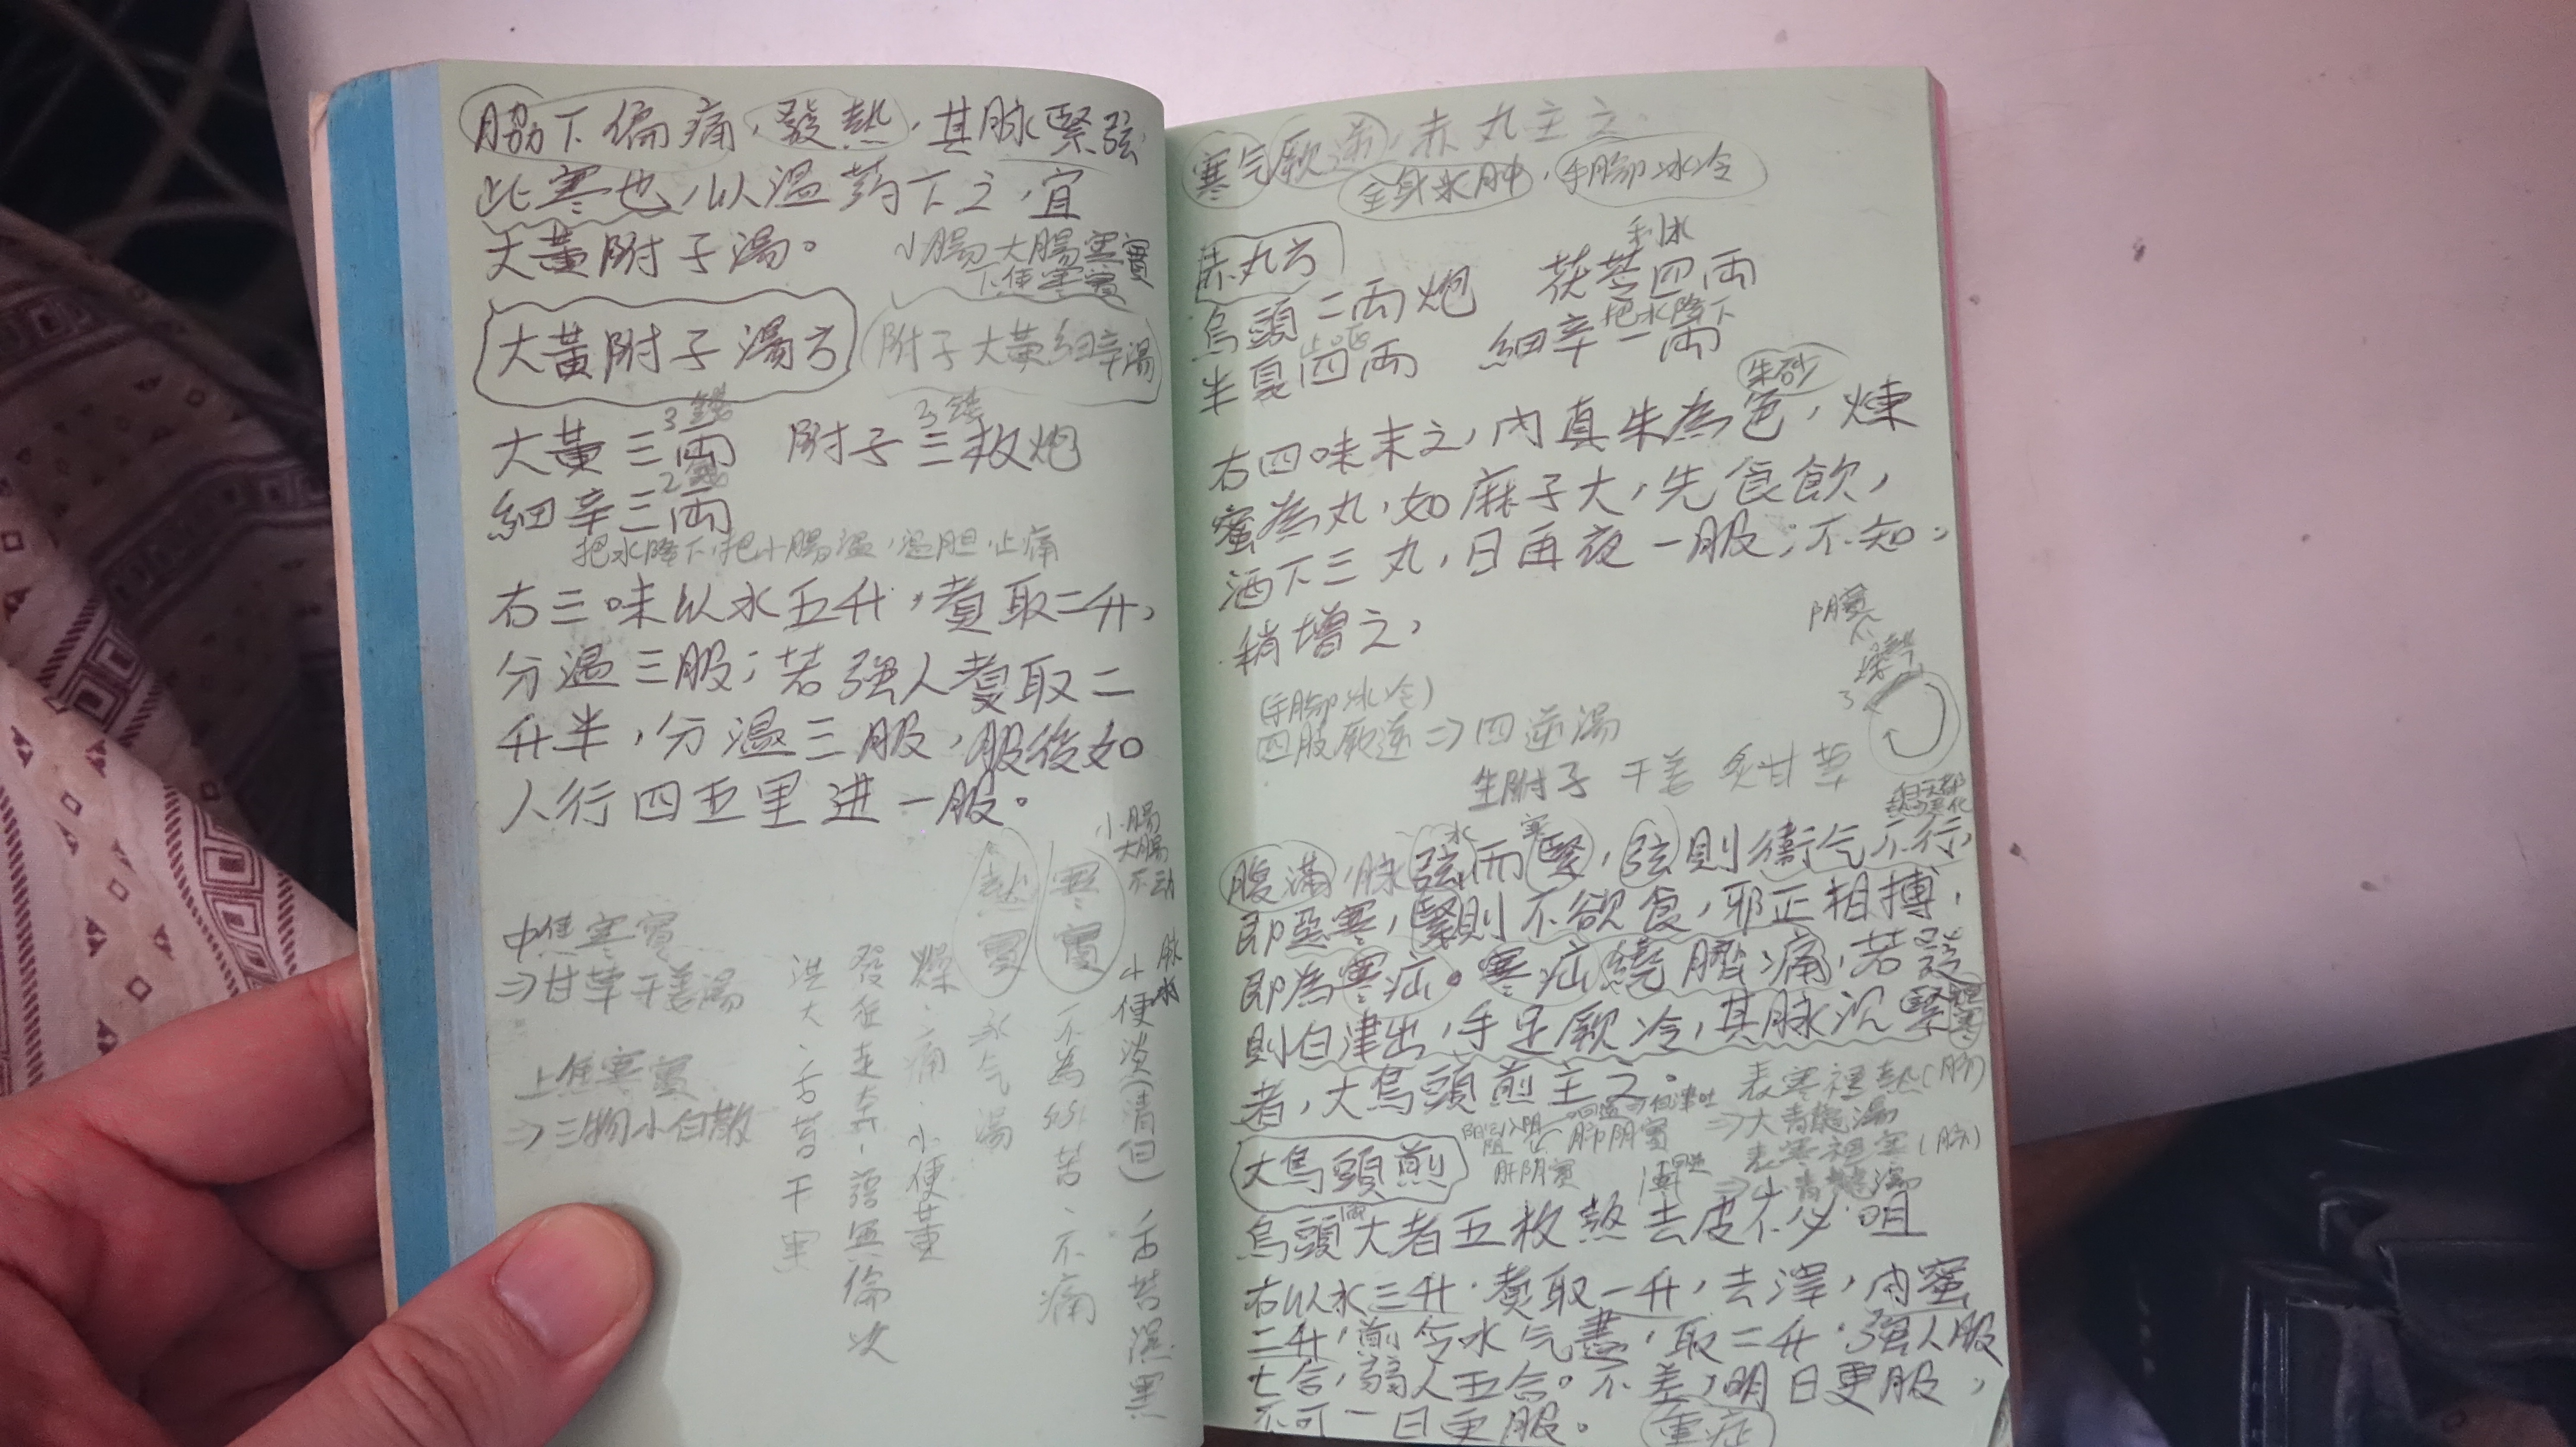 脇下偏痛，發熱，其脉緊弦
此寒也，以温药下之，宜
大黃附子湯。
小腸、大腸寒實
下焦寒實
大黃附子湯方
附子大黃細辛湯
3錢
3錢
大黃三兩 附子三枚炮
2錢
細辛三兩
把水降下，把小腸溫，溫胆，止痛
右三味以水五升，煮取二升，
分溫三服；若强人煮取二
升半，分溫三服，服後如
人行四五里进一服。
小腸
大腸
不动
寒實
熱實
中焦寒實
⇒甘草干姜湯
上焦寒實
⇒三物小白散
小便淡(清白)、舌苔濕黑
不為所苦、不痛
承气湯
燥、痛、小便黃
發狂走奔、語無倫次
洪大、舌苔干黑
寒气厥逆，赤丸主之.
全身水肿，手脚冰冷
赤丸方
利水
烏頭二兩炮 茯苓四兩
止嘔
把水降下
半夏四兩 細辛一兩
朱砂
右四味末之，内真朱為色，煉
蜜為丸，如麻子大，先食飲，
酒下三丸，日再夜一服；不知，
稍增之，
阴實
(手脚冰冷)
四肢厥逆⇒四逆湯
生附子 干姜 炙甘草
水
寒
腹滿，脉弦而緊，弦則衛气不行，
即惡寒，緊則不欲食，邪正相搏，
即為寒疝。寒疝繞臍痛，若發
則白津出，手足厥冷，其脉沉緊
裡寒
者，大烏頭煎主之。
表寒裡熱(肺)
⇒大青龍湯
表寒裡寒(肺)
⇒小青龍湯
肺阴實
肝阴實
大烏頭煎
烏頭大者五枚熬去皮不必咀
右以水三升，煮取一升，去滓，内蜜
二升，煎令水气盡，取二升，强人服
七合，弱人五合。不差，明日更服，
不可一日更服。
重症